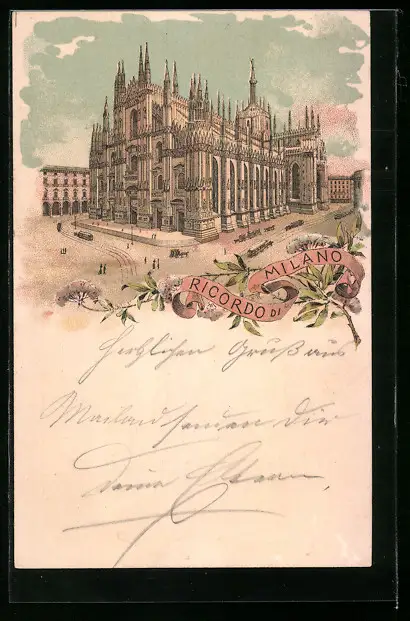 RICORDO DI MILANO
Herzlichen Gruß aus
Mailand senden Dir
Deine Eltern